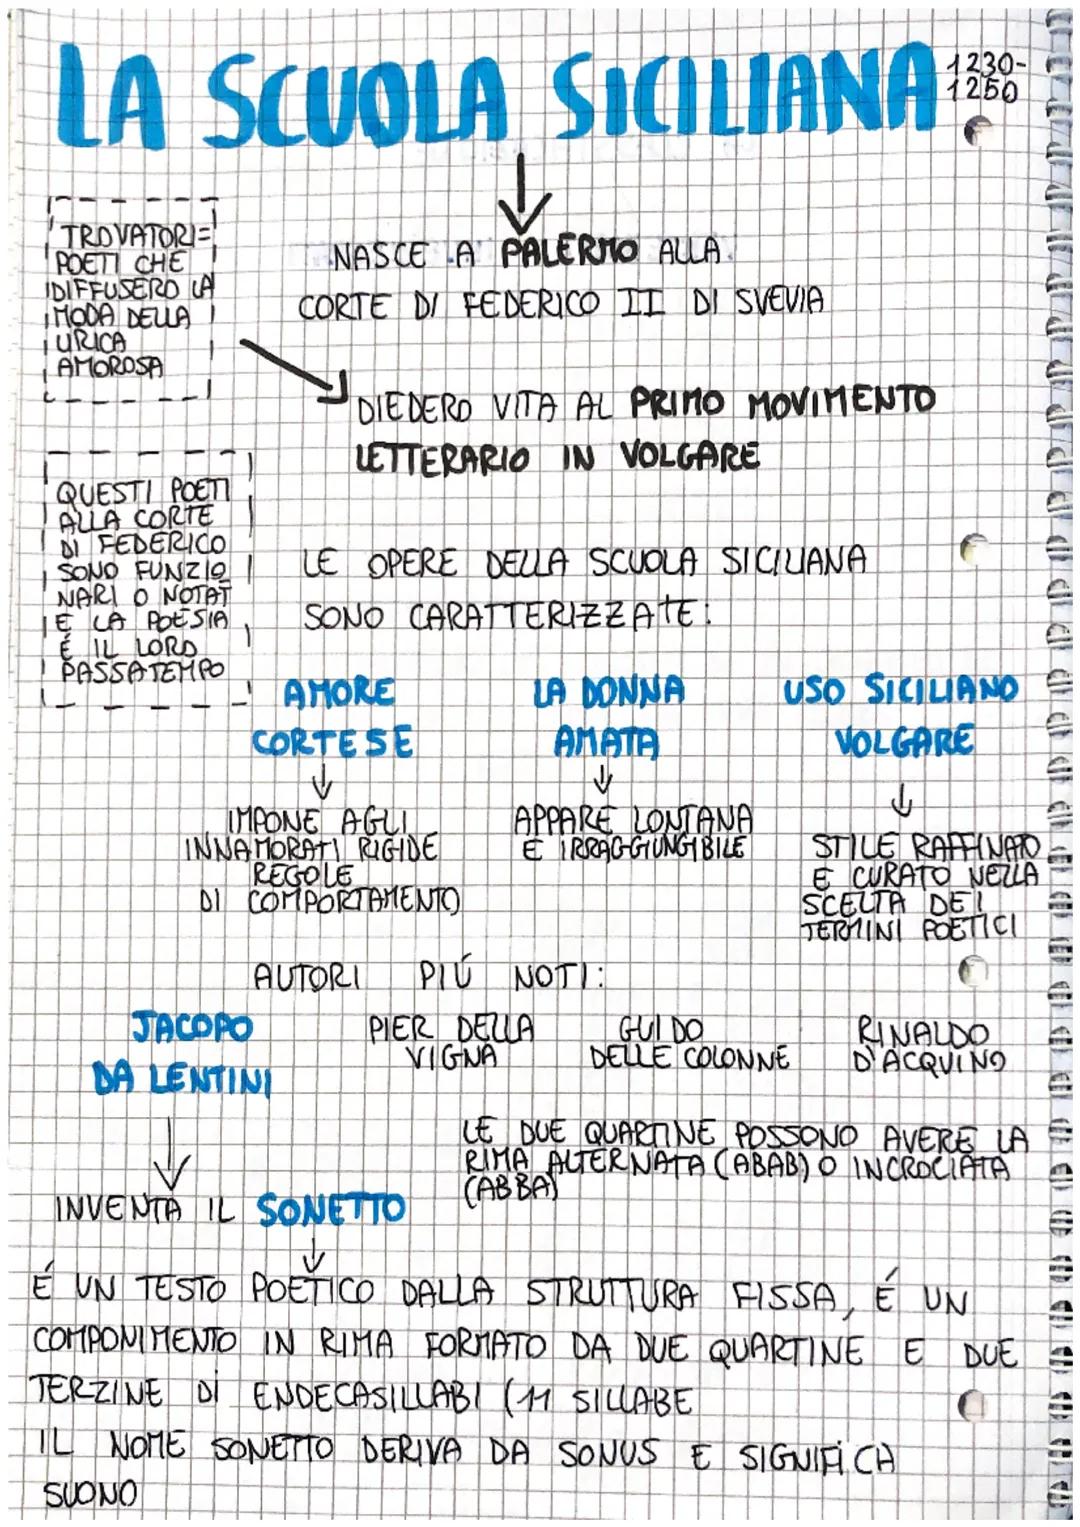 LA SCUOLA SICILIANA
1230-
1250
TROVATORI=
POETI CHE
DIFFUSERO LA
MODA DELLA
LIRICA
AMOROSA
NASCE A PALERMO ALLA
CORTE DI FEDERICO II DI SVEVIA
DIEDERO VITA AL PRIMO MOVIMENTO
LETTERARIO IN VOLGARE
QUESTI POETI
ALLA CORTE
DI FEDERICO
SONO FUNZIO
NARI O NOTAI
E LA POESIA
É IL LORO
PASSATEMPO
LE OPERE DELLA SCUOLA SICILIANA
SONO CARATTERIZZATE:
AMORE
CORTESE
IMPONE AGLI
INNAMORATI RIGIDE
REGOLE
DI COMPORTAMENTO
LA DONNA
AMATA
APPARE LONTANA
E IRRAGGIUNGIBILE
USO SICILIANO
VOLGARE
STILE RAFFINATO
E CURATO NELLA
SCELTA DEI
TERMINI POETICI
AUTORI PIÚ NOTI:
JACOPO
DA LENTINI
PIER DELLA
VIGNA
GUIDO
DELLE COLONNE
RINALDO
D'ACQUINO
LE DUE QUARTINE POSSONO AVERE LA
RIMA ALTERNATA (ABAB) O INCROCIATA
(ABBA)
INVENTA IL SONETTO
É UN TESTO POETICO DALLA STRUTTURA FISSA, É UN
COMPONIMENTO IN RIMA FORMATO DA DUE QUARTINE E DUE
TERZINE DI ENDECASILLABI (11 SILLABE
IL NOME SONETTO DERIVA DA SONUS E SIGNIFICA
SUONO